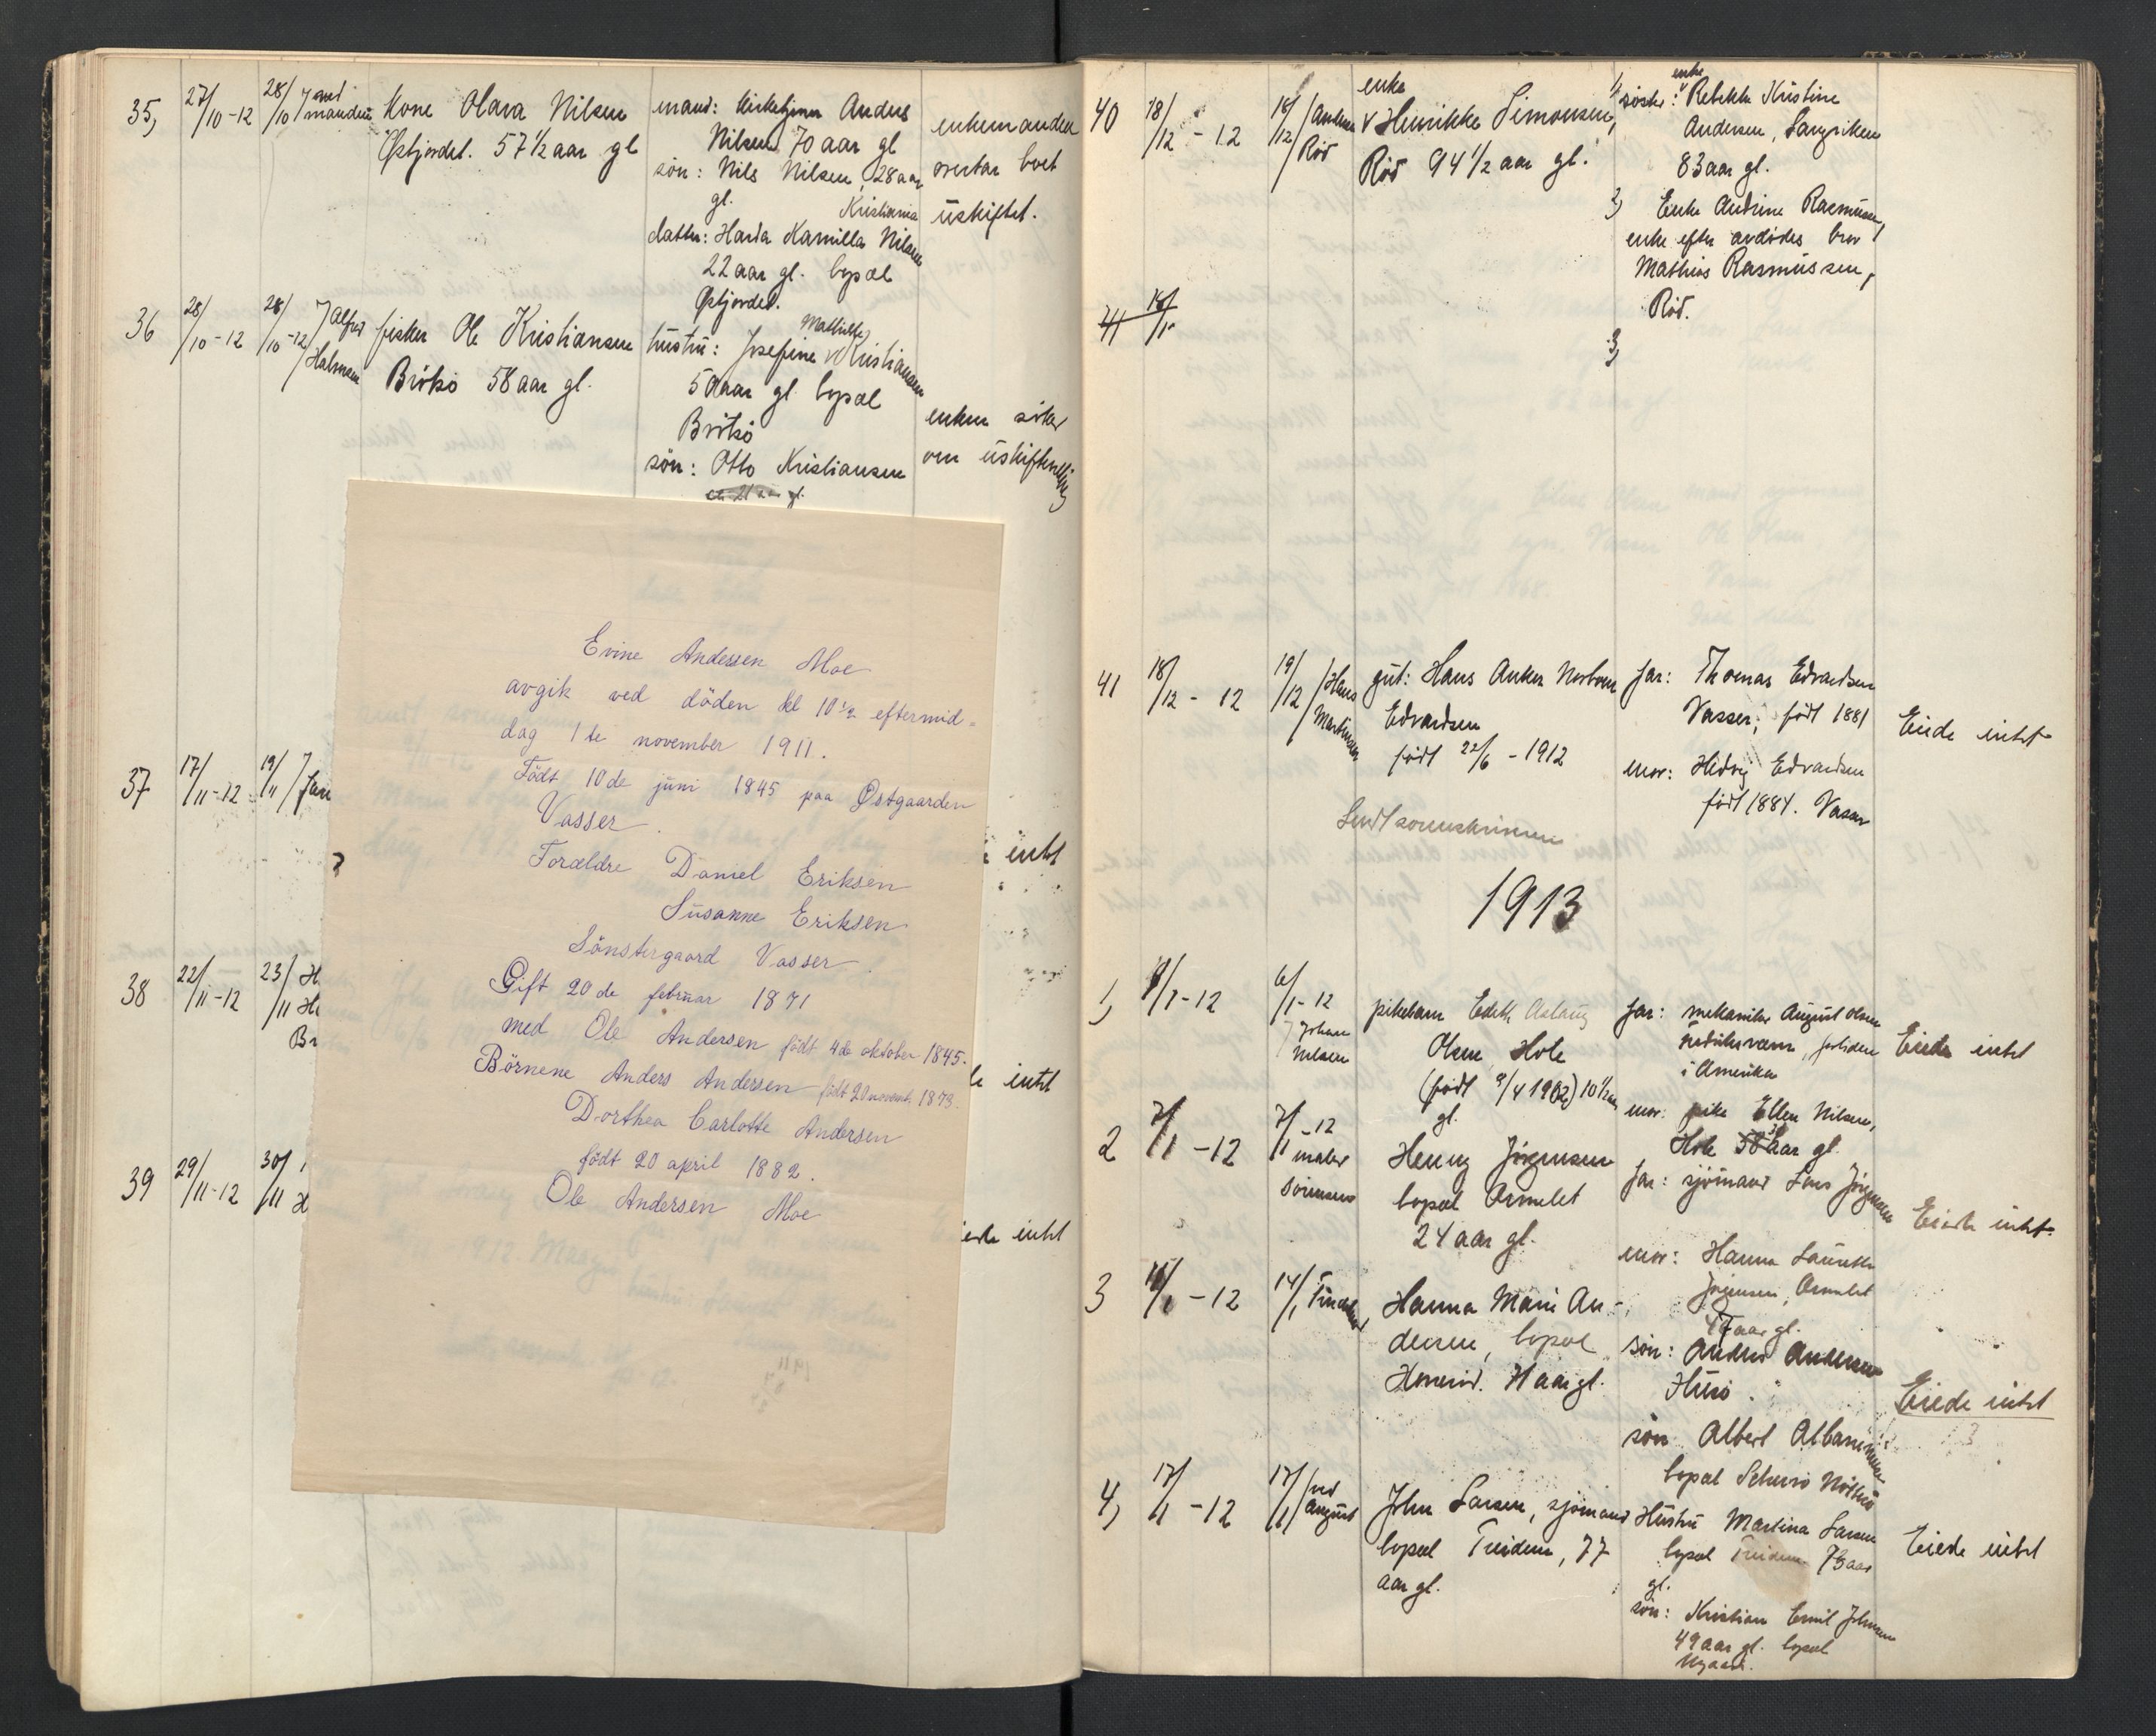 35,
27/10-12
28/10
Kone Olava Nilsen
Østjordet. 57½ aar gl
mand: Kirketjener Anders
Nilsen 70 aar gl
sön: Nils Nilsen, 28 aar
gl. Kristiania
datter: Kamilla Nilsen
22 aar gl. bopæl
Østjordet.
enkemanden
overtar boet
uskiftet.
36
28/10-12
28/10-12
Alfred
Halvorsen
fisker Ole Kristiansen
Brötsö 58 aar gl.
Mathilde
hustru: Josefine v Kristiansen
50 aar gl bopæl
Brötsö
sön: Otto Kristiansen
21 aar gl.
enken söker
om uskiftebevilling
37
17/11-12
19/11
intet
38
22/11-12
23/11
intet
39
29/11-12
30/11
intet
Evine Andersen Moe
avgik ved döden kl 10½ eftermid=
dag 1te november 1911.
Födt 10de juni 1845 paa Østgaarden
Vasser.
Forældre Daniel Eriksen
Susanne Eriksen
Sönstergaard Vasser.
Gift 20de februar 1871
med Ole Andersen födt 4de oktober 1845.
Börnene Anders Andersen födt 20 novemb. 1873.
Dorthea Carlotte Andersen
födt 20 april 1882.
Ole Andersen Moe
40
18/12-12
Röd
enke
v Henrikke Simonsen,
Röd 94½ aar gl.
enke
1/ söster: v Rebekka Kristine
Andersen,
83 aar gl.
2, Enke Andrine Rasmussen,
enke efter avdödes bror
Mathias Rasmussen,
Röd.
3,
41
41
18/12-12
19/12
Hans
Martinsen
gut: Hans Anker
Edvardsen
födt 22/6-1912
far: Thomas Edvardsen
Vasser, födt 1881
mor: Hedvig Edvardsen
födt 1884. Vasser
Eiede intet
Sendt sorenskriveren
1913
1,
6/1-12
Johan
Nilsen
pikebarn Edith Aslaug
Olsen, Hole
(födt 9/4 1902) 10½ aar
gl.
far: mekaniker August Olsen
i Amerika
mor: pike Ellen Nilsen,
Hole aar gl.
Eiede intet
2
7/1-12
7/1-12
maler
Sörensen
Henny Jörgensen
bopæl
24 aar gl.
far: sjömand Lars Jörgensen
mor: Hanna
Jörgensen,
aar gl.
Eiede intet
3
-12
14/1
Hanna Marie An-
dersen, bopæl
aar gl.
sön: Anders Andersen
sön Albert
bopæl
Eiede intet
4,
17/1-12
17/1
ved
August
John Larsen, sjömand
bopæl Treidene, 77
aar gl.
Hustru Martina Larsen
bopæl Treidene 73 aar
gl.
sön: Kristian Emil Johnsen
49 aar gl. bopæl
Eiede intet